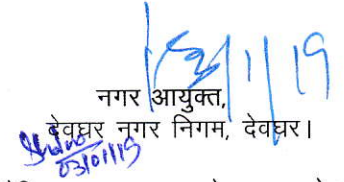 3/1/19
नगर आयुक्त,
देवघर नगर निगम, देवघर।
03/01/19